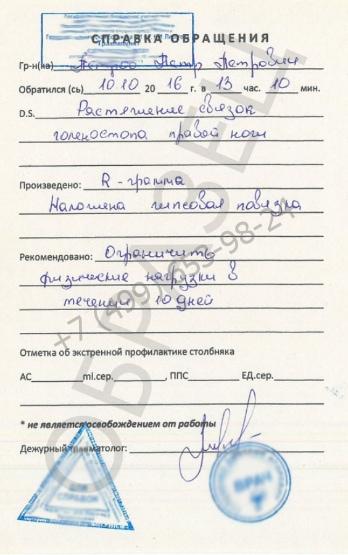 СПРАВКА ОБРАЩЕНИЯ
Гр-н(ка) Петров Петр Петрович
Обратился (сь) 10 10 20 16 г. в 13 час. 10 мин.
D.S. Растяжение связок
голеностопа правой ноги
Произведено: R - грамма
Наложена гипсовая повязка
Рекомендовано: Ограничить
физические нагрузки в
течении 10 дней
Отметка об экстренной профилактике столбняка
АС ml.сер. , ППС ЕД.сер.
* не является освобождением от работы
Дежурный травматолог:
ДЛЯ
СПРАВОК
ВРАЧ
ОБРАЗЕЦ